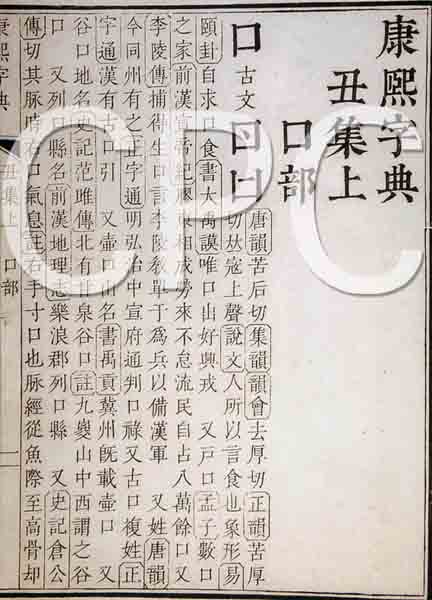 康熙字典
丑集上
口部
口 古文 唐韻苦后切集韻韻會去厚切正韻苦厚
切𠀤寇上聲說文人所以言食也象形易
頤卦自求口食書大禹謨唯口出好興戎 又戶口孟子數口
之家前漢宣帝紀膠東相成勞來不怠流民自占八萬餘口 又
李陵傳捕得生口言李陵敎單于爲兵以備漢軍 又姓唐韻
今同州有之正字通明弘治中宣府通判口祿又古口複姓正
字通漢有古口引 又壺口山名書禹貢冀州旣載壺口 又
谷口地名史記范雎傳北有甘泉谷口註九嵏山中西謂之谷
口 又列口縣名前漢地理志樂浪郡列口縣 又史記倉公
傳切其脉時右口氣急註右手寸口也脉經從魚際至高骨却
康熙字典 丑集上 口部 一
CPC